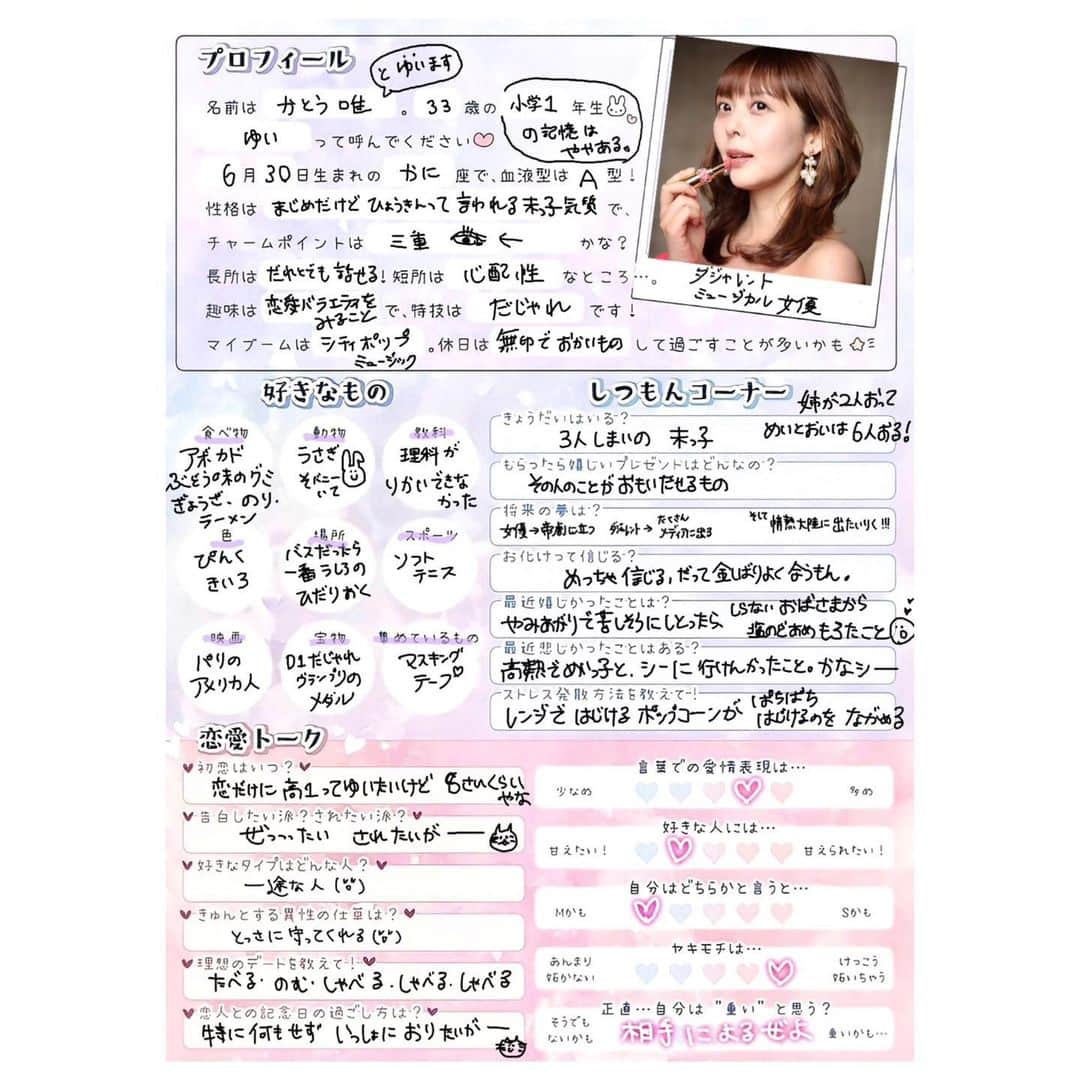 プロフィール
とゆいます
名前は かとう唯 。33歳の 小学1年生
の記憶は
ややある。
ゆい って呼んでください
6月30日生まれの かに 座で、血液型は A 型!
性格は まじめだけど ひょうきんって 言われる 末っ子気質 で、
チャームポイントは 三重 ← かな?
長所は だれとでも 話せる! 短所は 心配性 なところ…。
趣味は 恋愛バラエティを
みること で、特技は だじゃれ です!
マイブームは シティポップ
ミュージック 。休日は 無印で おかいもの して過ごすことが多いかも
ダジャレント
ミュージカル 女優
好きなもの
食べ物
アボカド
ぶどう味のグミ
ぎょうざ、のり・
ラーメン
動物
うさぎ
そバニー
いて
教科
理科が
りかいできな
かった
色
ぴんく
きいろ
場所
バスだったら
一番うしろの
ひだりかく
スポーツ
ソフト
テニス
映画
パリの
アメリカ人
宝物
D1だじゃれ
グランプリの
メダル
集めているもの
マスキング
テープ
しつもんコーナー
姉が2人おって
めいとおいは 6人おる!
きょうだいはいる?
3人しまいの 末っ子
もらったら嬉しいプレゼントはどんなの?
その人のことが おもいだせるもの
将来の夢は?
女優→帝劇に立つ ダジャレント→ たくさん
メディアに出る そして 情熱大陸に出たいりく!!!
お化けって信じる?
めっちゃ信じる、だって金しばりよく合うもん。
最近嬉しかったことは?
やみあがりで苦しそうにしとったら しらない おばさまから
塩のどあめ もろたこと
最近悲しかったことはある?
高熱でめかっ子と、シーに行けんかったこと。かなシー
ストレス発散方法を教えて!
レンジで はじける ポップコーンが ぱちぱち
はじけるのを ながめる
恋愛トーク
初恋はいつ?
恋だけに 高1ってゆいたいけど 8さいくらい
やな
告白したい派?されたい派?
ぜっっったい されたいがー
好きなタイプはどんな人?
一途な人
きゅんとする異性の仕草は?
とっさに守ってくれる
理想のデートを教えて!
たべる・のむ・しゃべる・しゃべる・しゃべる
恋人との記念日の過ごし方は?
特に何もせず いっしょに おりたいがー
言葉での愛情表現は…
少なめ 多め
好きな人には…
甘えたい! 甘えられたい!
自分はどちらかと言うと…
Mかも Sかも
ヤキモチは…
あんまり
妬かない けっこう
妬いちゃう
正直…自分は"重い"と思う?
そうでも
ないかも 相手によるぜよ 重いかも…